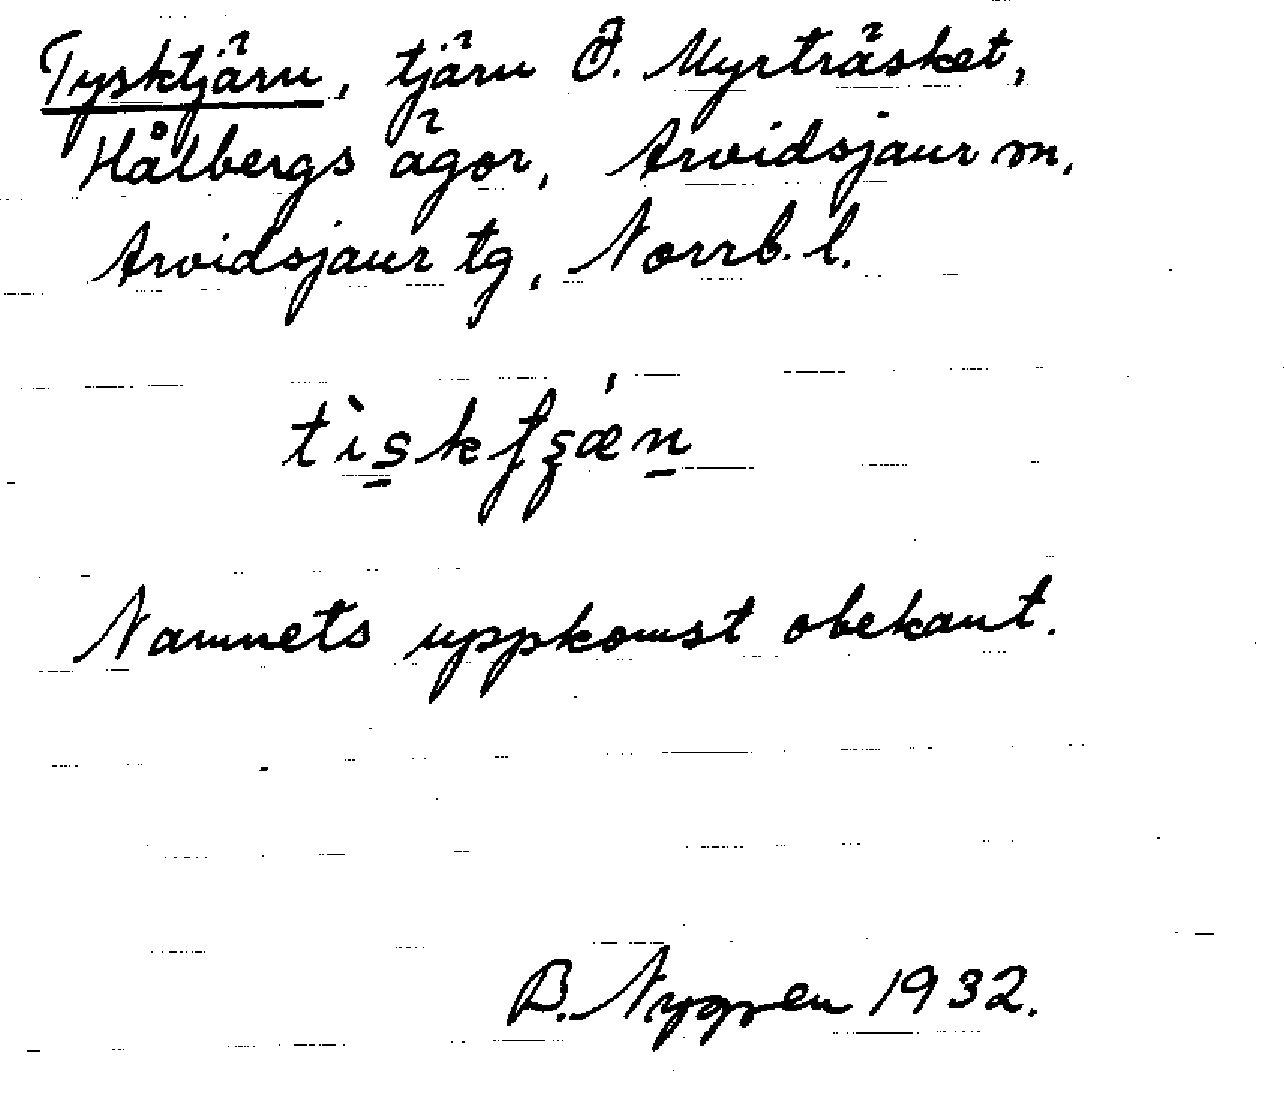 Tysktjärn, tjärn Ö. Myrträsket,
Hålbergs ägor, Arvidsjaur m,
Arvidsjaur tg, Norrb. l.
Namnets uppkomst obekant.
B. Nygren 1932.